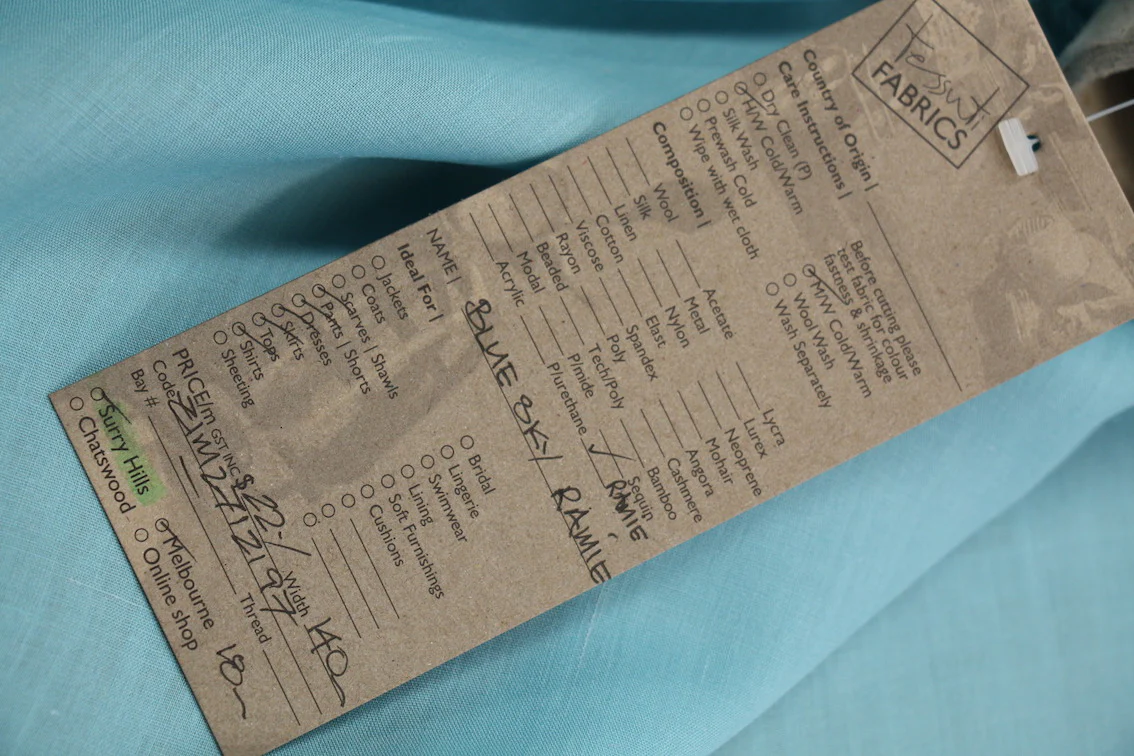 tessuti
FABRICS
Country of Origin |
Care Instructions |
Dry Clean (P)
H/W Cold/Warm
Silk Wash
Prewash Cold
Wipe with wet cloth
Before cutting please
test fabric for colour
fastness & shrinkage
M/W Cold/Warm
Wool Wash
Wash Separately
Composition |
Wool
Silk
Linen
Cotton
Viscose
Rayon
Beaded
Modal
Acrylic
Acetate
Metal
Nylon
Elast
Spandex
Poly
Tech/Poly
P/mide
P/urethane
Lycra
Lurex
Neoprene
Mohair
Angora
Cashmere
Bamboo
Sequin
✓ RAMIE
NAME | BLUE SKY RAMIE
Ideal For |
Jackets
Coats
Scarves | Shawls
Pants | Shorts
Dresses
Skirts
Tops
Shirts
Sheeting
Bridal
Lingerie
Swimwear
Lining
Soft Furnishings
Cushions
PRICE/m GST INC $22-/ Width 140
Code 21W2712197
Bay # Thread
Surry Hills
Chatswood
Melbourne
Online shop
18